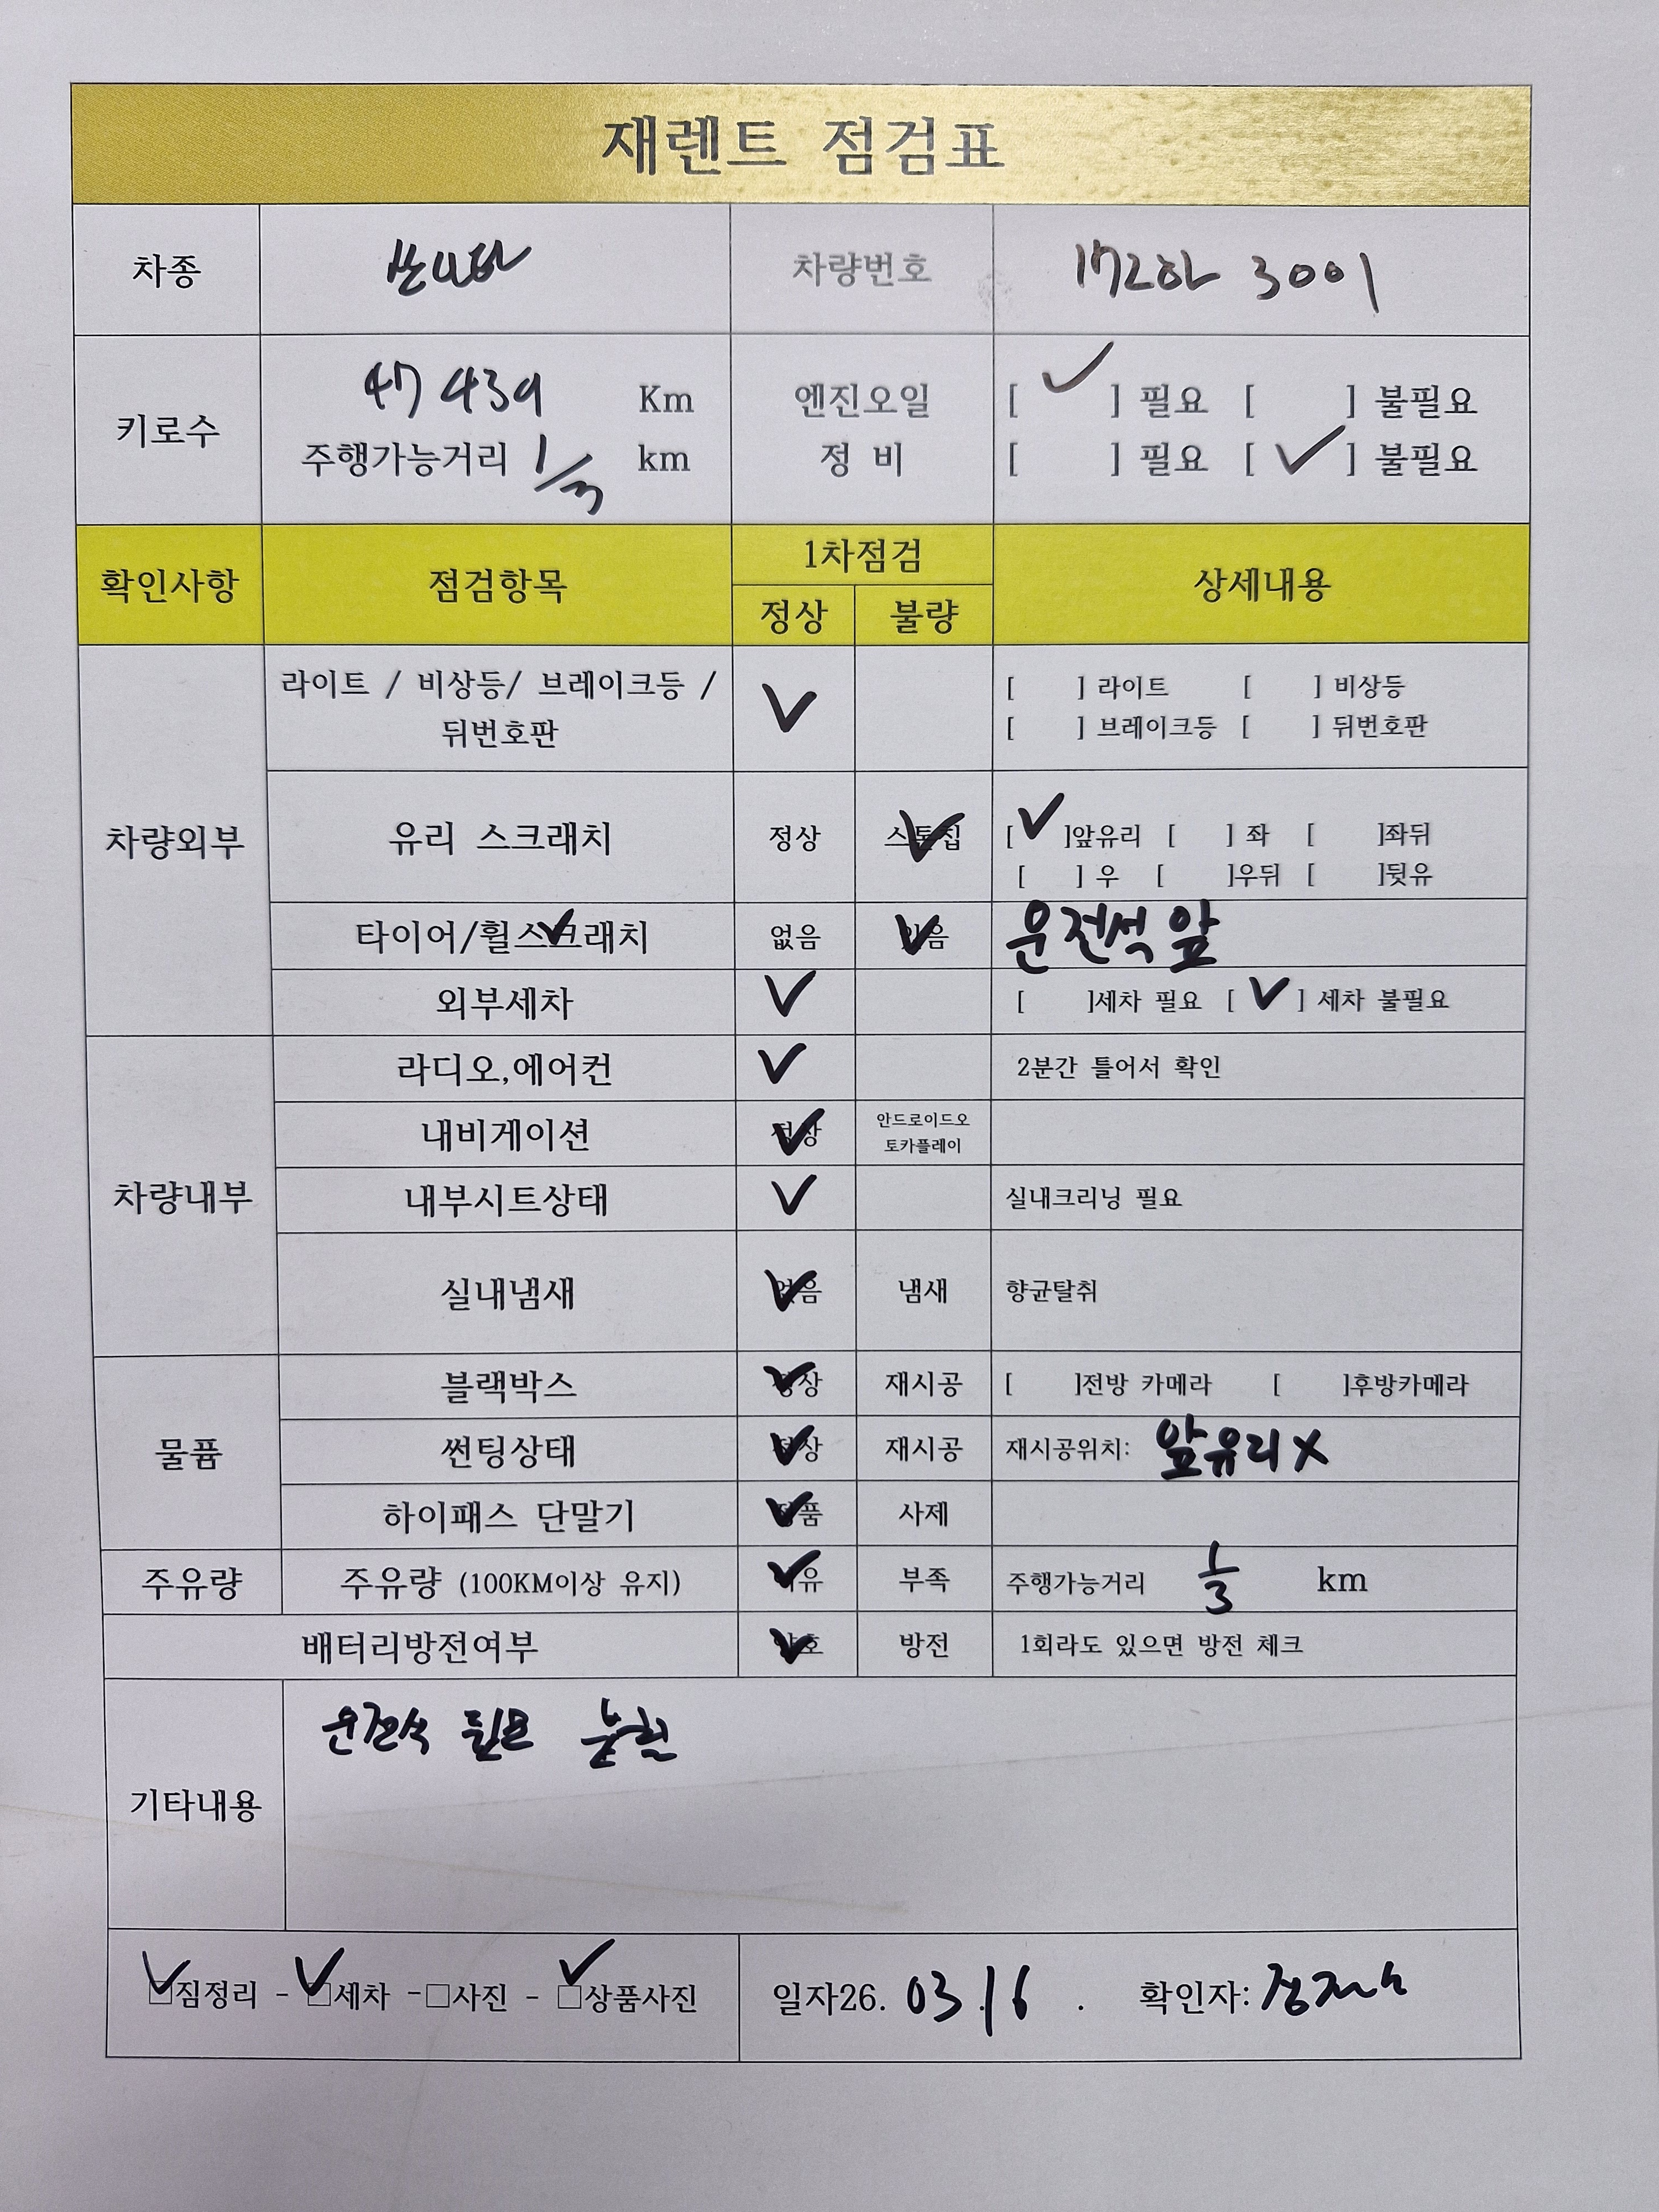 재렌트 점검표
차종 쏘나타 차량번호 172하 3001
키로수 47439 Km 엔진오일 [ ✓ ] 필요 [ ] 불필요
주행가능거리 1/3 km 정 비 [ ] 필요 [ ✓ ] 불필요
확인사항 점검항목 1차점검 상세내용
정상 불량
차량외부 라이트 / 비상등/ 브레이크등 / ✓ [ ] 라이트 [ ] 비상등
뒤번호판 [ ] 브레이크등 [ ] 뒤번호판
유리 스크래치 정상 스톤칩 ✓ [ ✓ ]앞유리 [ ] 좌 [ ]좌뒤
[ ] 우 [ ]우뒤 [ ]뒷유
타이어/휠스크래치 ✓ 없음 있음 ✓ 운전석 앞
외부세차 ✓ [ ]세차 필요 [ ✓ ] 세차 불필요
차량내부 라디오,에어컨 ✓ 2분간 틀어서 확인
내비게이션 정상 ✓ 안드로이드오
토카플레이
내부시트상태 ✓ 실내크리닝 필요
실내냄새 없음 ✓ 냄새 향균탈취
물품 블랙박스 정상 ✓ 재시공 [ ]전방 카메라 [ ]후방카메라
썬팅상태 정상 ✓ 재시공 재시공위치: 앞유리 X
하이패스 단말기 정품 ✓ 사제
주유량 주유량 (100KM이상 유지) 여유 ✓ 부족 주행가능거리 1/3 km
배터리방전여부 양호 ✓ 방전 1회라도 있으면 방전 체크
기타내용 운전석
☑짐정리 - ☑세차 -□사진 - ☑상품사진 일자26. 03.16 . 확인자: